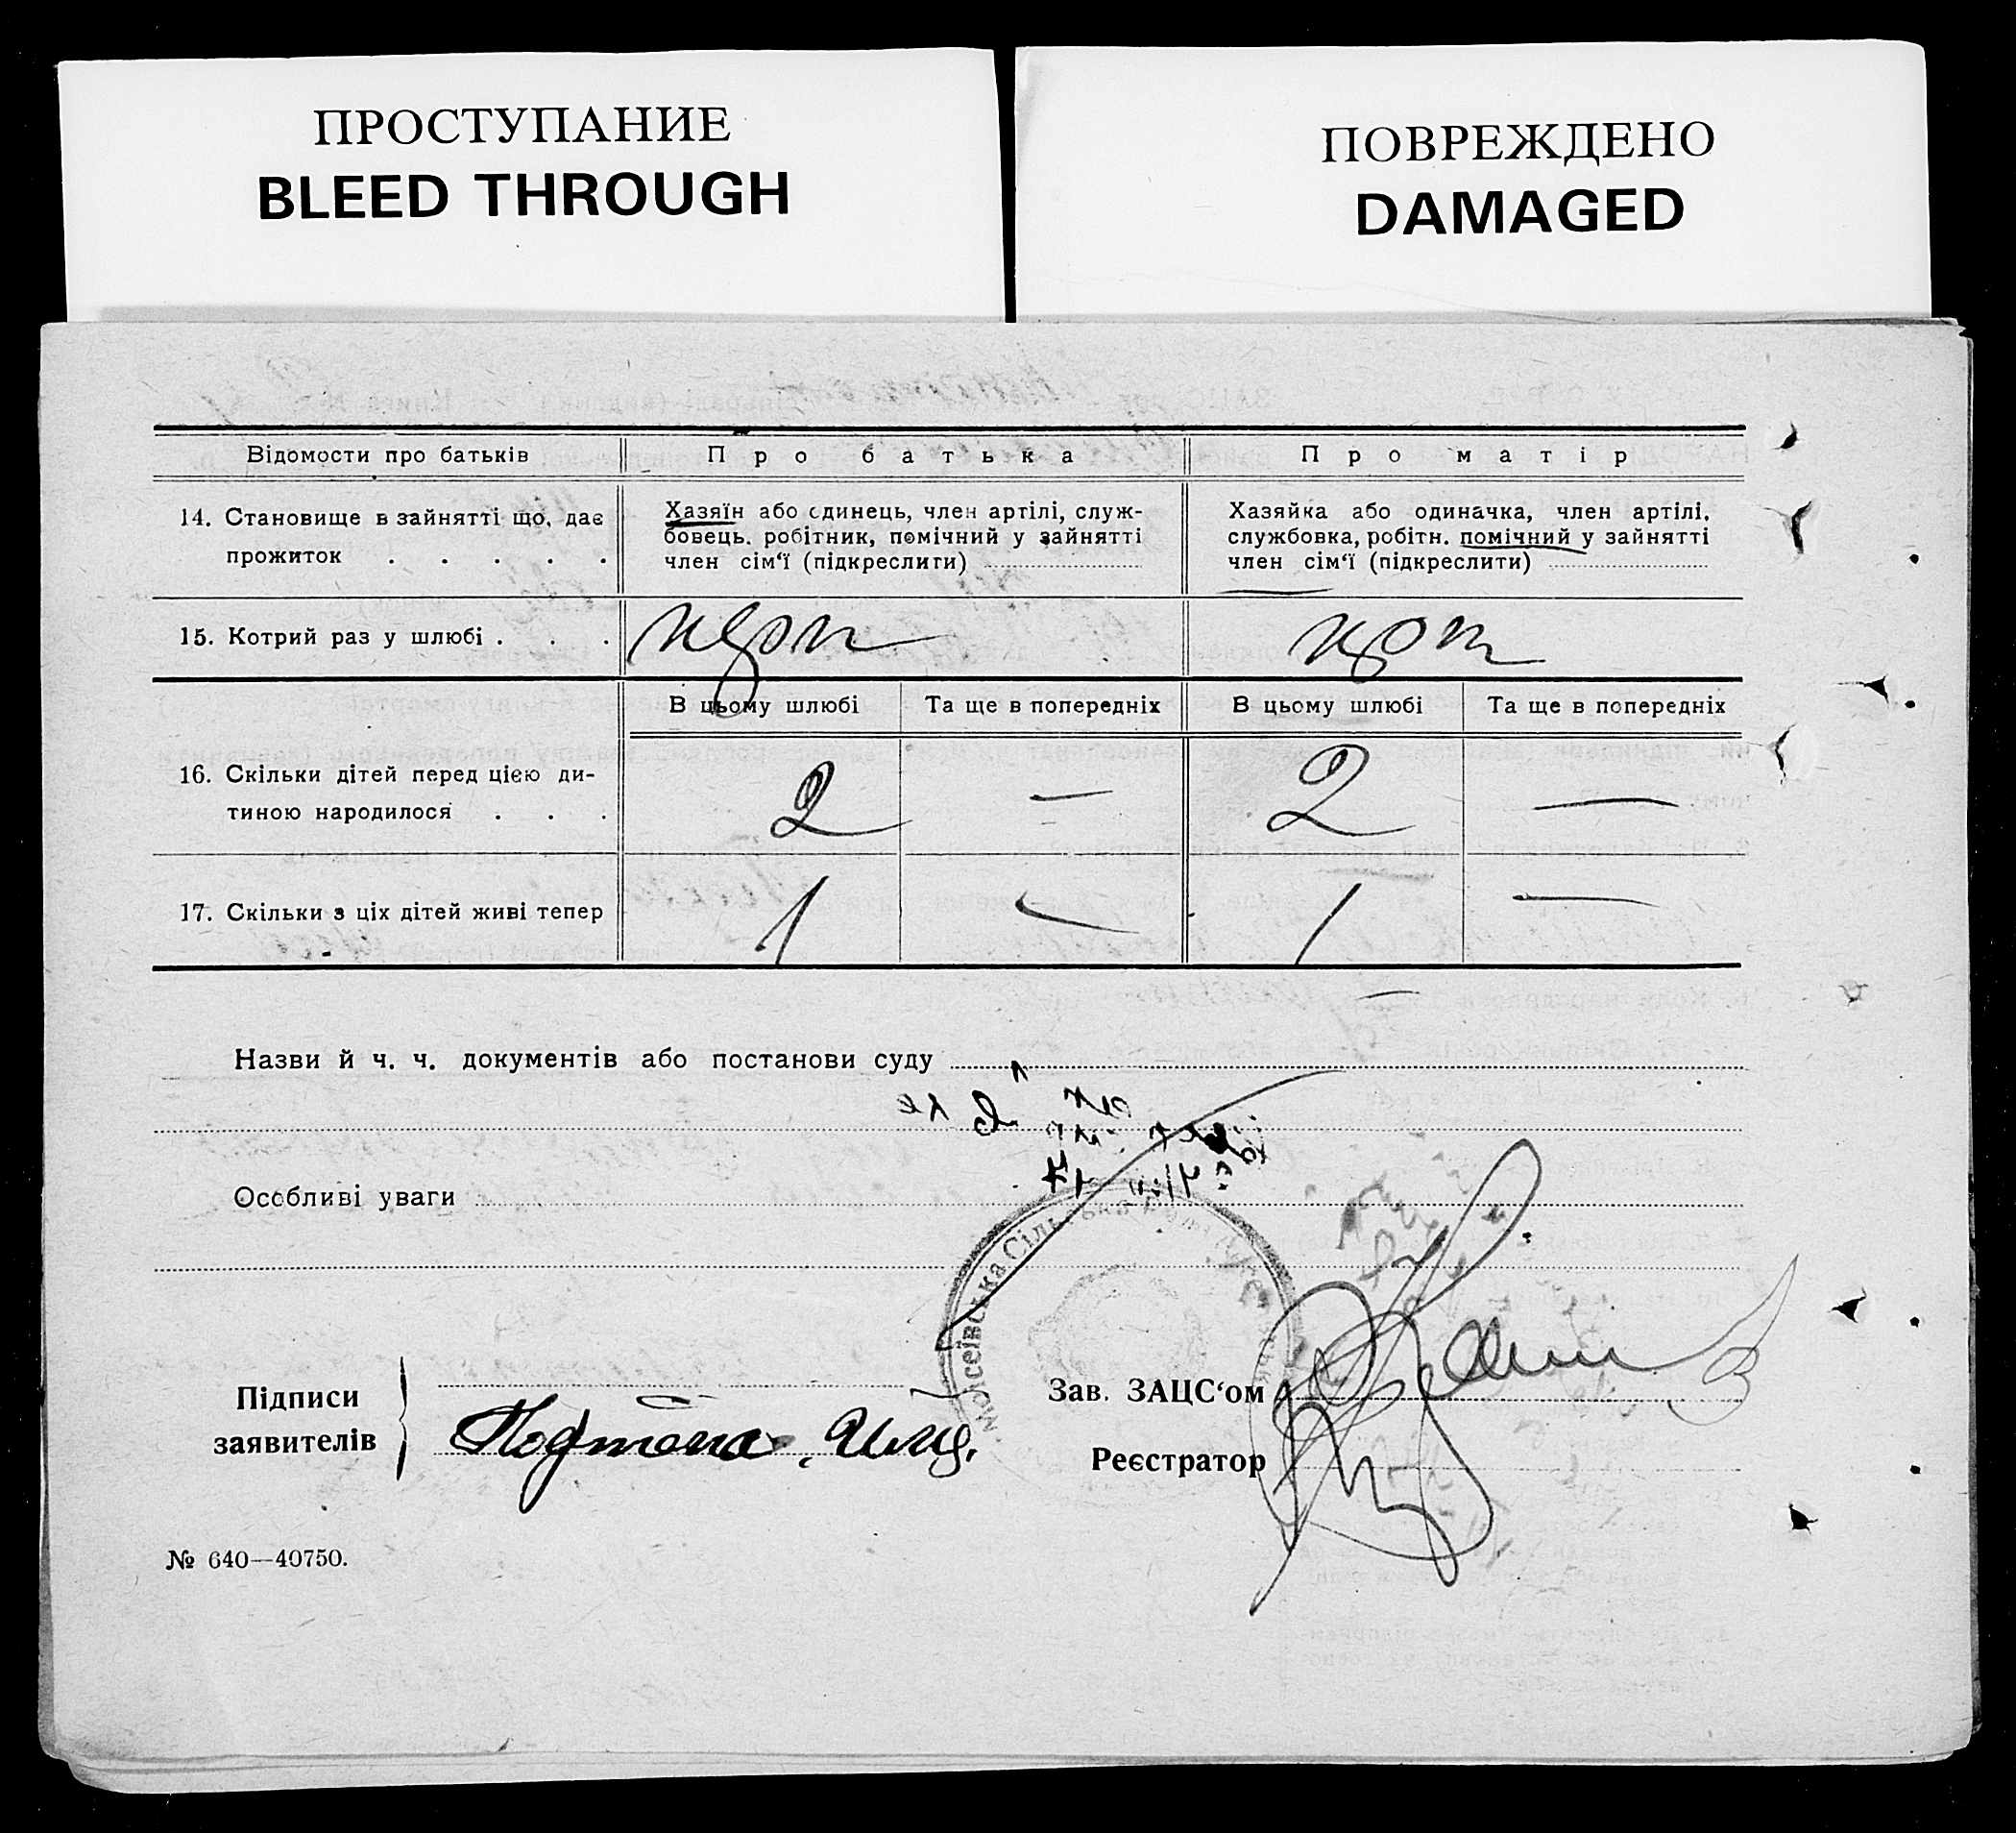 ПРОСТУПАНИЕ
BLEED THROUGH
ПОВРЕЖДЕНО
DAMAGED
Відомости про батьків
Про батька
Про матір
14. Становище в зайнятті що, дає прожиток . . . . .
Хазяїн або єдинець, член артілі, служ-
бовець. робітник, помічний у зайнятті
член сім‘ї (підкреслити)
Хазяйка або одиначка, член артілі,
службовка, робітн. помічний у зайнятті
член сім‘ї (підкреслити)
15. Котрий раз у шлюбі . . .
В цьому шлюбі
Та ще в попередніх
В цьому шлюбі
Та ще в попередніх
16. Скільки дітей перед цією ди-
тиною народилося . . .
2
—
2
—
17. Скільки з ціх дітей живі тепер
1
—
1
—
Назви й ч. ч. документів або постанови суду
Особливі уваги
Мойсеївська Сільська
Підписи
заявителів
Зав. ЗАЦС‘ом
Реєстратор
№ 640—40750.